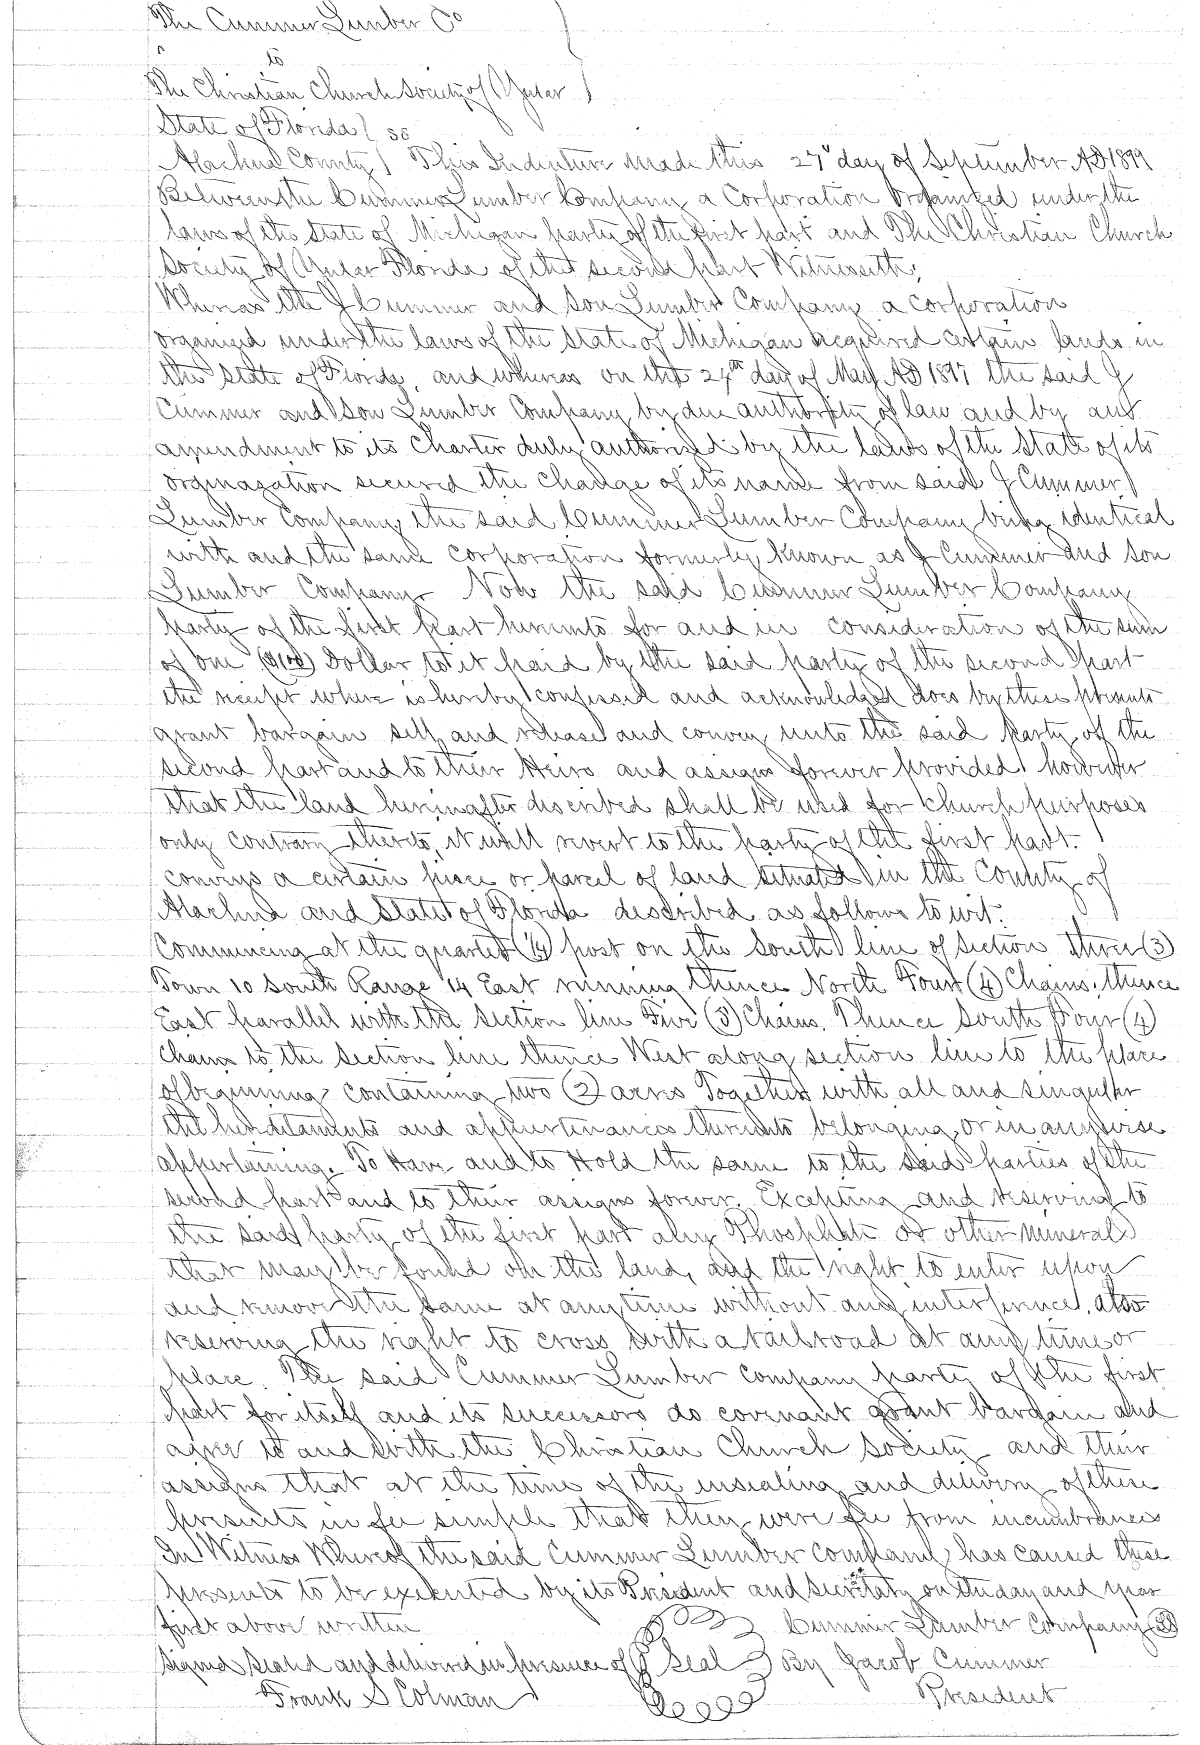 The Cummer Lumber Co
to
The Christian Church Society of
State of Florida } SS
Alachua County } This Indenture Made this 27" day of September AD 1899
Between the Cummer Lumber Company a Corporation Organized under the
laws of the State of Michigan party of the first part and The Christian Church
Society of Florida of the second part Witnesseth,
Whereas the J Cummer and Son Lumber Company a Corporation
organized under the laws of the State of Michigan acquired certain lands in
the State of Florida, and whereas on the 24th day of May AD 1897 the said J
Cummer and Son Lumber Company by due authority of law and by an
amendment to its Charter duly authorized by the laws of the State of its
orginazation secured the change of its name from said J Cummer
Lumber Company the said Cummer Lumber Company being identical
with and the same corporation formerly known as J Cummer and Son
Lumber Company. Now the said Cummer Lumber Company
party of the first part hereunto for and in consideration of the sum
of one Dollar to it paid by the said party of the second part
the receipt where is hereby confessed and acknowledged does by these presents
grant bargain sell and release and convey unto the said party of the
second part and to their Heirs and assigns forever provided however
that the land hereinafter discribed shall be used for church purposes
only contrary thereto, it will revert to the party of the first part.
conveys a certain piece or parcel of land situated in the County of
Alachua and State of Florida described as follows to wit.
Commencing at the quarter (1/4) post on the South line of section three (3)
Town 10 South Range 14 East running thence North Four (4) Chains, thence
East parallel with the section line Five (5) Chains. Thence South Four (4)
Chains to the section line thence West along section line to the place
of beginning containing two (2) acres Together with all and singular
the hereditaments and appurtenances thereunto belonging, or in anywise
appertaining. To Have and to Hold the same to the said parties of the
second part and to their assigns forever. Excepting and reserving to
the said party of the first part any Phosphate or other mineral
that may be found on the land, and the right to enter upon
and remove the same at anytime without any interference, also
reserving the right to cross with a railroad at any time or
place. The said Cummer Lumber Company party of the first
part for itself and its successors do covenant grant bargain and
agree to and with the Christian Church Society and their
assigns that at the time of the ensealing and delivery of these
presents in fee simple that they were free from incumbrances
In Witness Whereof the said Cummer Lumber Company has caused these
presents to be executed by its President and Secretary on the day and year
first above written Cummer Lumber Company
Signed Sealed and delivered in presence of Seal By Jacob Cummer
Frank S Colman President